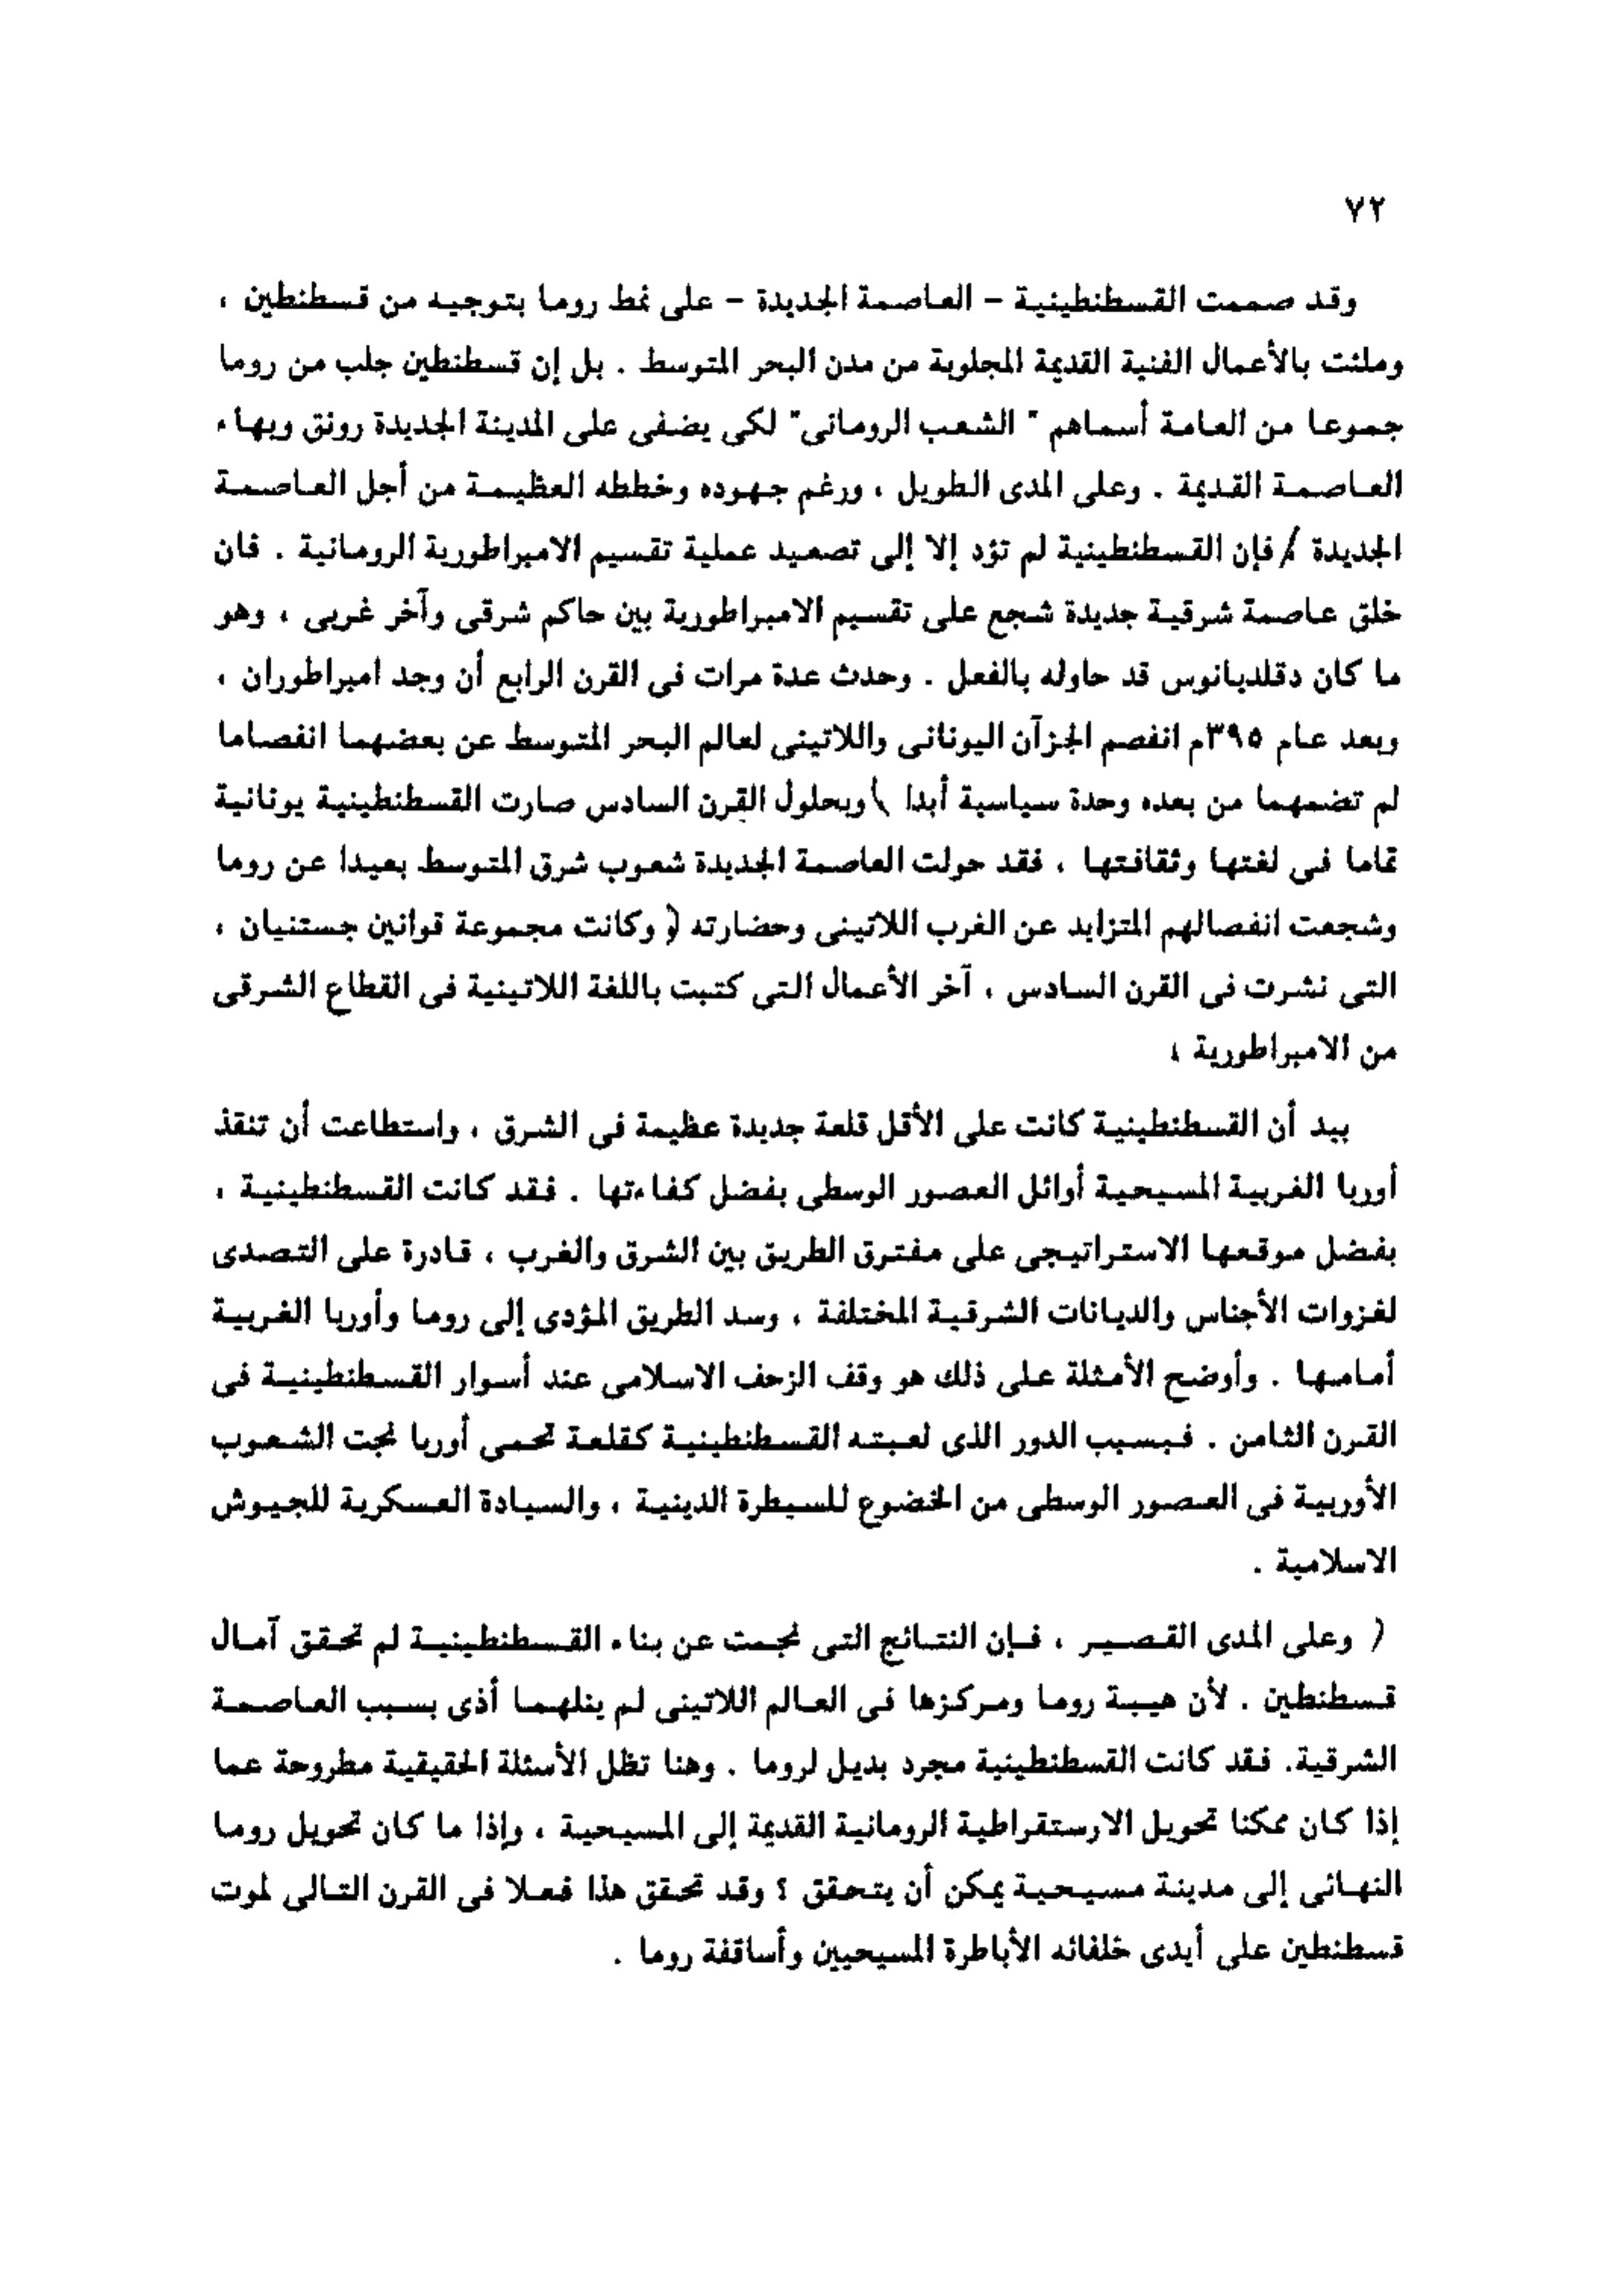 ٧٢
وقد صممت القسطنطينية – العاصمة الجديدة – على نمط روما بتوجيه من قسطنطين ،
وملئت بالأعمال الفنية القديمة المجلوبة من مدن البحر المتوسط . بل إن قسطنطين جلب من روما
جموعا من العامة أسماهم " الشعب الرومانى" لكى يضفى على المدينة الجديدة رونق وبهاء
العاصمة القديمة . وعلى المدى الطويل ، ورغم جهوده وخططه العظيمة من أجل العاصمة
الجديدة ، فإن القسطنطينية لم تؤد إلا إلى تصعيد عملية تقسيم الامبراطورية الرومانية . فان
خلق عاصمة شرقية جديدة شجع على تقسيم الامبراطورية بين حاكم شرقى وآخر غربى ، وهو
ما كان دقلديانوس قد حاوله بالفعل . وحدث عدة مرات فى القرن الرابع أن وجد امبراطوران ،
وبعد عام ٣٩٥م انفصم الجزآن اليونانى واللاتينى لعالم البحر المتوسط عن بعضهما انفصاما
لم تضمهما من بعده وحدة سياسية أبدا \ وبحلول القرن السادس صارت القسطنطينية يونانية
تماما فى لغتها وثقافتها ، فقد حولت العاصمة الجديدة شعوب شرق المتوسط بعيدا عن روما
وشجعت انفصالهم المتزايد عن الغرب اللاتينى وحضارته ( وكانت مجموعة قوانين جستنيان ،
التى نشرت فى القرن السادس ، آخر الأعمال التى كتبت باللغة اللاتينية فى القطاع الشرقى
من الامبراطورية ،
بيد أن القسطنطينية كانت على الأقل قلعة جديدة عظيمة فى الشرق ، واستطاعت أن تنقذ
أوربا الغربية المسيحية أوائل العصور الوسطى بفضل كفاءتها . فقد كانت القسطنطينية ،
بفضل موقعها الاستراتيجى على مفترق الطريق بين الشرق والغرب ، قادرة على التصدى
لغزوات الأجناس والديانات الشرقية المختلفة ، وسد الطريق المؤدى إلى روما وأوربا الغربية
أمامها . وأوضح الأمثلة على ذلك هو وقف الزحف الاسلامى عند أسوار القسطنطينية فى
القرن الثامن . فبسبب الدور الذى لعبته القسطنطينية كقلعة تحمى أوربا نجت الشعوب
الأوربية فى العصور الوسطى من الخضوع للسيطرة الدينية ، والسيادة العسكرية للجيوش
الاسلامية .
( وعلى المدى القصير ، فإن النتائج التى نجمت عن بناء القسطنطينية لم تحقق آمال
قسطنطين . لأن هيبة روما ومركزها فى العالم اللاتينى لم ينلهما أذى بسبب العاصمة
الشرقية. فقد كانت القسطنطينية مجرد بديل لروما . وهنا تظل الأسئلة الحقيقية مطروحة عما
إذا كان ممكنا تحويل الارستقراطية الرومانية القديمة إلى المسيحية ، وإذا ما كان تحويل روما
النهائى إلى مدينة مسيحية يمكن أن يتحقق ؟ وقد تحقق هذا فعلا فى القرن التالى لموت
قسطنطين على أيدى خلفائه الأباطرة المسيحيين وأساقفة روما .